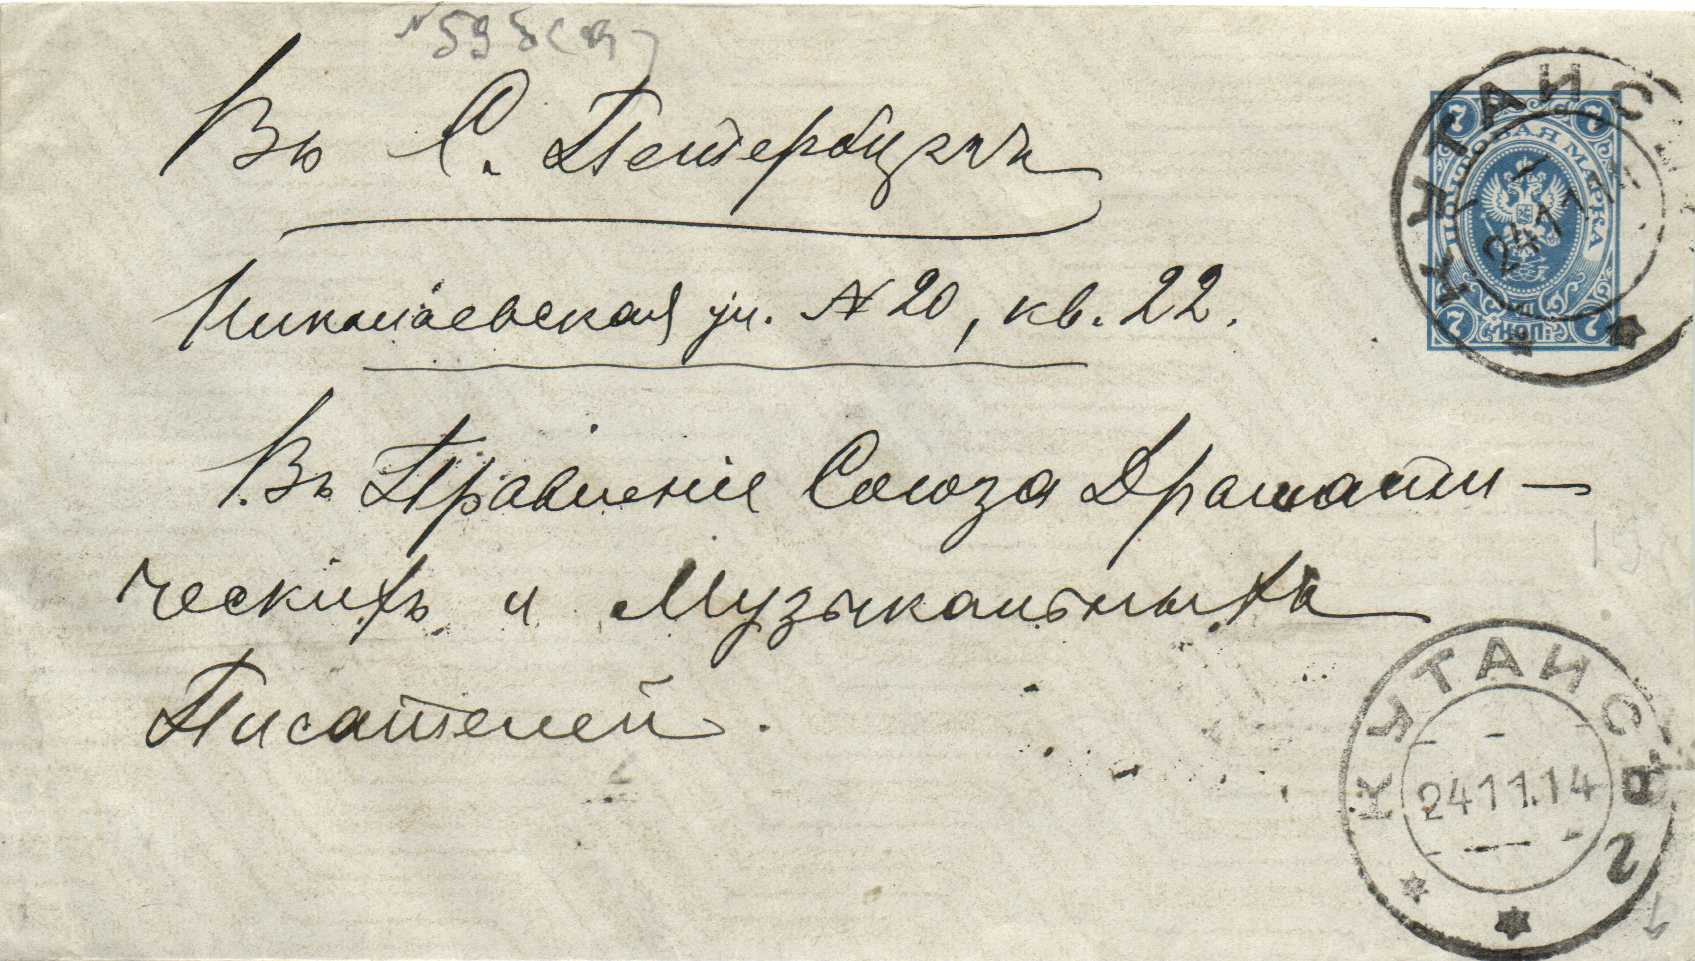 Въ С. Петербургъ
Николаевская ул. № 20, кв. 22.
Въ Правленіе Союза Драмати-
ческихъ и Музыкальныхъ
Писателей.
7 7
ПОЧТОВАЯ МАРКА
7 КОП. 7
КУТАИСЪ
24 11
КУТАИСЪ
24 11.14
2